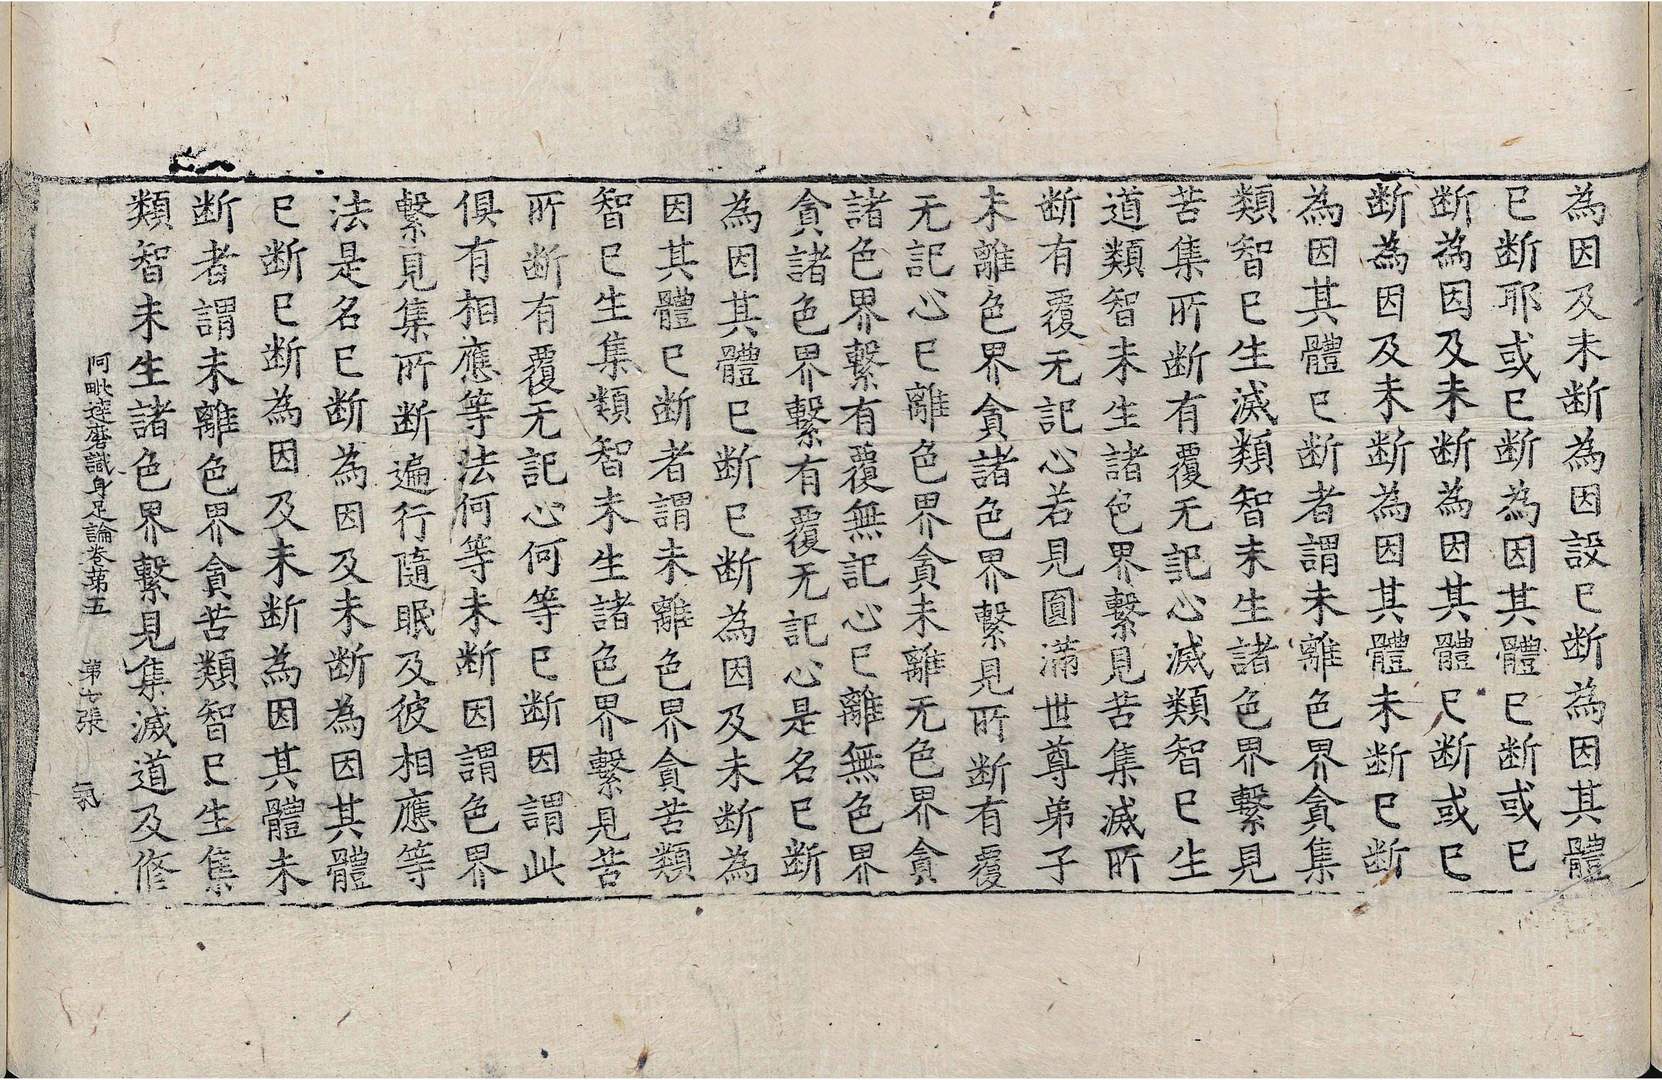 為因及未断為因設已断為因其體
已断耶或已断為因其體已断或已
断為因及未断為因其體已断或已
断為因及未断為因其體未断已断
為因其體已断者謂未離色界貪集
類智已生滅類智未生諸色界繫見
苦集所断有覆无記心滅類智已生
道類智未生諸色界繫見苦集滅所
断有覆无記心若見圓滿世尊弟子
未離色界貪諸色界繫見所断有覆
无記心已離色界貪未離无色界貪
諸色界繫有覆無記心已離無色界
貪諸色界繫有覆无記心是名已断
為因其體已断已断為因及未断為
因其體已断者謂未離色界貪苦類
智已生集類智未生諸色界繫見苦
所断有覆无記心何等已断因謂此
俱有相應等法何等未断因謂色界
繫見集所断遍行隨眠及彼相應等
法是名已断為因及未断為因其體
已断已断為因及未断為因其體未
断者謂未離色界貪苦類智已生集
類智未生諸色界繫見集滅道及修
阿毗達磨識身足論卷苐五 苐七張 氣